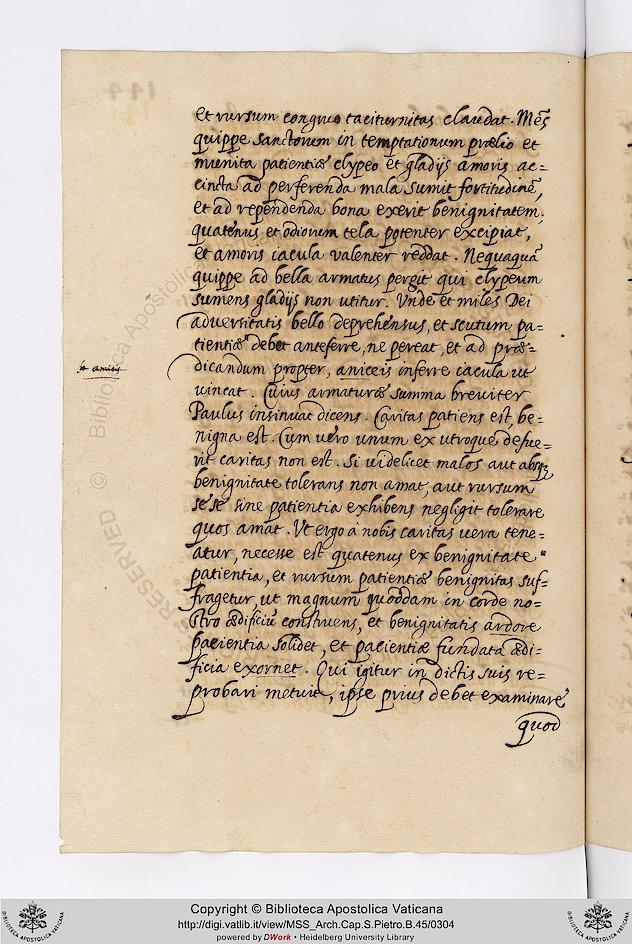 et rursum congruo taciturnitas claudat. Mēs
quippe sanctorum in temptationum prælio et
munita patientiæ clypeo et gladijs amoris ac=
cincta ad perferenda mala sumit fortitudinē,
et ad rependenda bona exerit benignitatem,
quatenus et odiorum tela potenter excipiat,
et amoris iacula valenter reddat. Nequaquā
quippe ad bella armatus pergit qui clypeum
sumens gladijs non utitur. Vnde et miles Dei
adversitatis bello deprehensus, et scutum pa=
tientiæ debet anteferre, ne pereat, et ad præ=
amicis
dicandum propter, aniceis inferre iacula ut
vincat. Cuius armaturæ summa breviter
Paulus insinuat dicens. Caritas patiens est, be=
nigna est. Cum vero unum ex utroque defue=
rit caritas non est. Si videlicet malos aut absq;
benignitate tolerans non amat, aut rursum
se se sine patientia exhibens negligit tolerare
quos amat. Vt ergo à nobis caritas uera tene=
atur, necesse est quatenus ex benignitate
patientia, et rursum patientiæ benignitas suf=
fragetur, ut magnum quoddam in corde no=
stro ædificiū construens, et benignitatis ardore
pacientia solidet, et pacientiæ fundata ædi=
ficia exornet. Qui igitur in dictis suis re=
probari metuit, ipse prius debet examinare
quod
© Biblioteca Apostolica
RESERVED
Copyright © Biblioteca Apostolica Vaticana
http://digi.vatlib.it/view/MSS_Arch.Cap.S.Pietro.B.45/0304
powered by DWork • Heidelberg University Library